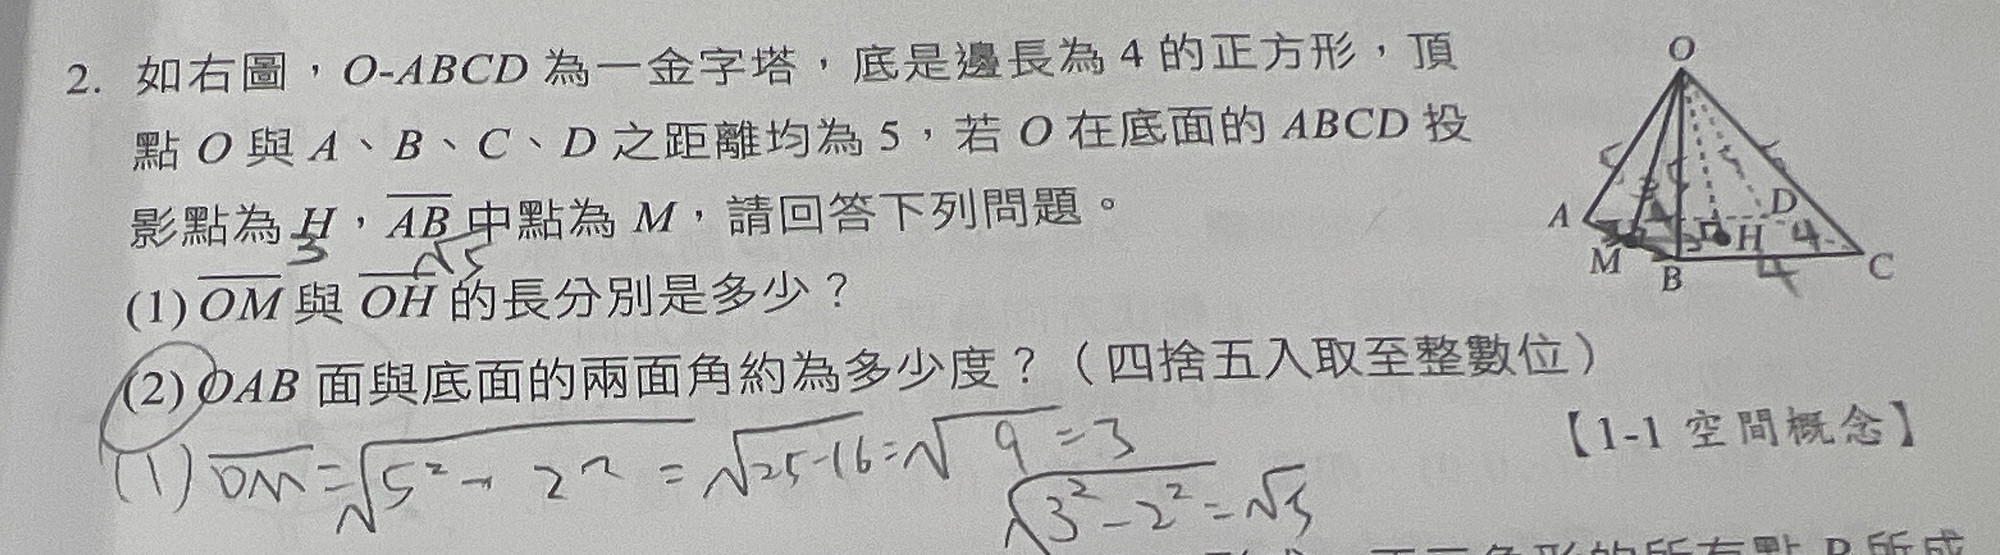 2. 如右圖，O-ABCD 為一金字塔，底是邊長為 4 的正方形，頂
點 O 與 A、B、C、D 之距離均為 5，若 O 在底面的 ABCD 投
影點為 H，AB 中點為 M，請回答下列問題。
3 √5
(1) OM 與 OH 的長分別是多少？
(2) OAB 面與底面的兩面角約為多少度？（四捨五入取至整數位）
【1-1 空間概念】
(1) OM = √5² - 2² = √25-16 = √9 = 3
√3² - 2² = √5
O
A
M
B
H
D
C
4
4